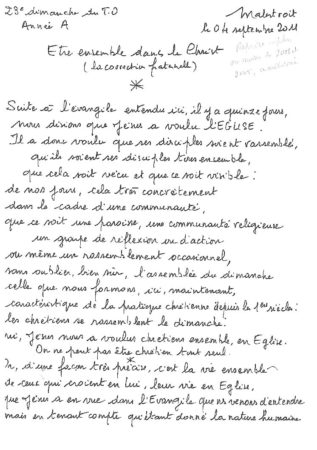 23e dimanche du T.O
Année A
Malestroit
le 04 septembre 2011
Etre ensemble dans le Christ
(la correction fraternelle)
Suite à l'évangile entendu ici, il y a quinze jours,
nous disions que Jésus a voulu l'EGLISE.
Il a donc voulu que ses disciples soient rassemblés,
qu'ils soient ses disciples tous ensemble,
que cela soit vécu et que ce soit visible :
de nos jours, cela très concrètement
dans le cadre d'une communauté,
que ce soit une paroisse, une communauté religieuse
un groupe de réflexion ou d'action
ou même un rassemblement occasionnel,
sans oublier, bien sûr, l'assemblée du dimanche
celle que nous formons, ici, maintenant,
caractéristique de la pratique chrétienne depuis le 1er siècle :
les chrétiens se rassemblent le dimanche.
oui, Jésus nous a voulus chrétiens ensemble, en Eglise.
On ne peut pas être chrétien tout seul.
Or, d'une façon très précise, c'est la vie ensemble
de ceux qui croient en lui, leur vie en Eglise,
que Jésus a en vue dans l'Evangile que ns venons d'entendre
mais en tenant compte qu'étant donné la nature humaine